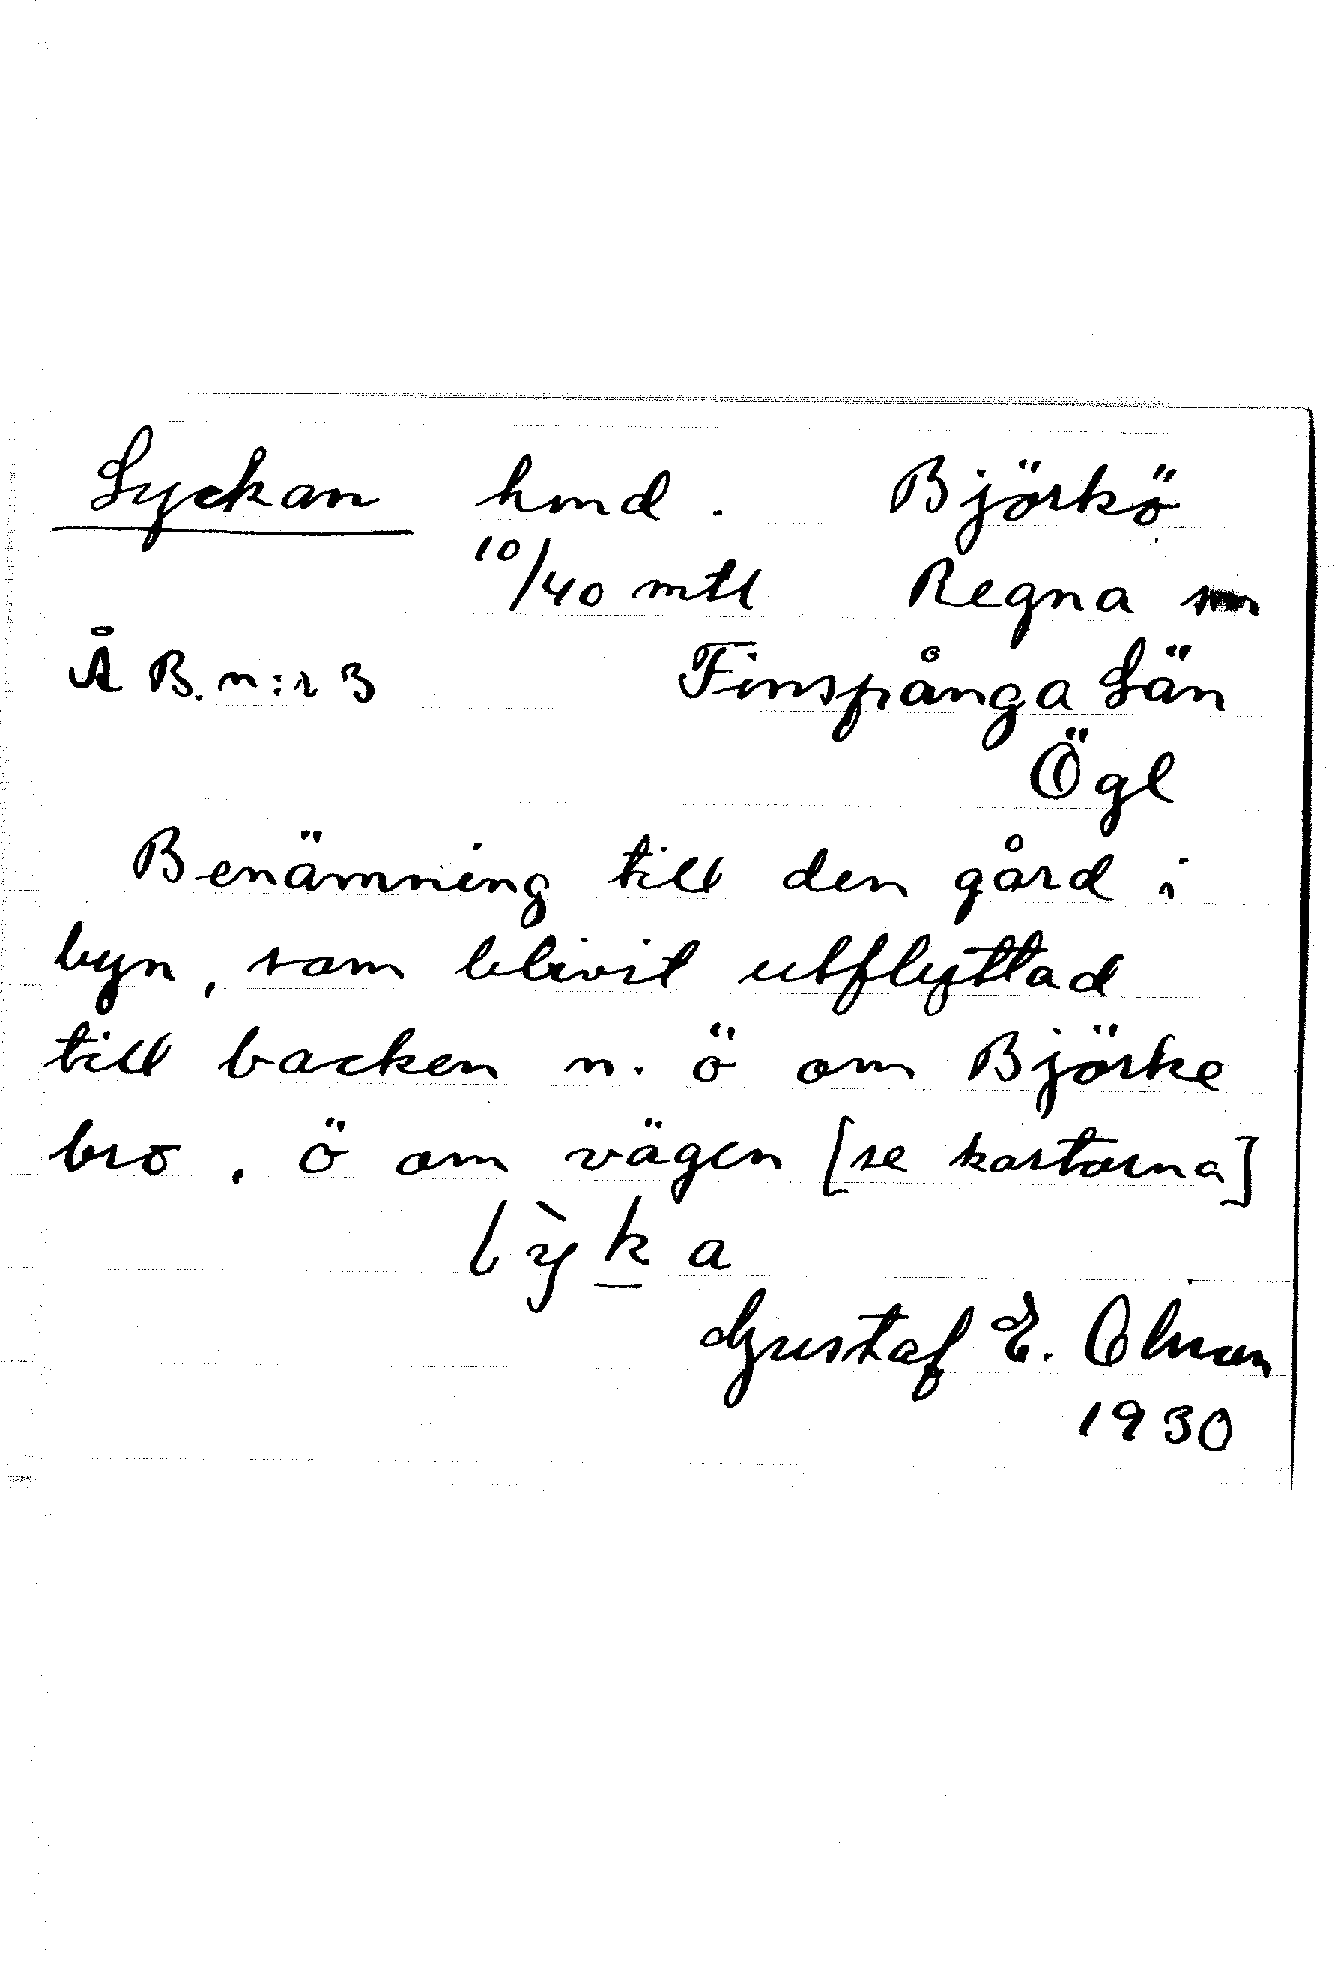 Lyckan hmd. Björkö
10/40 mtl Regna sn
Å B. n:r 3 Finspånga Län
Ögl
Benämning till den gård i
byn, som blivit utflyttad
till backen n. ö om Björke
bro, ö om vägen [se kartorna]
lỳka
Gustaf E.
1930